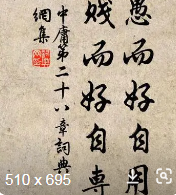 愚而好自用
賤而好自専
中庸第二十八章詞典
網集
510 x 695